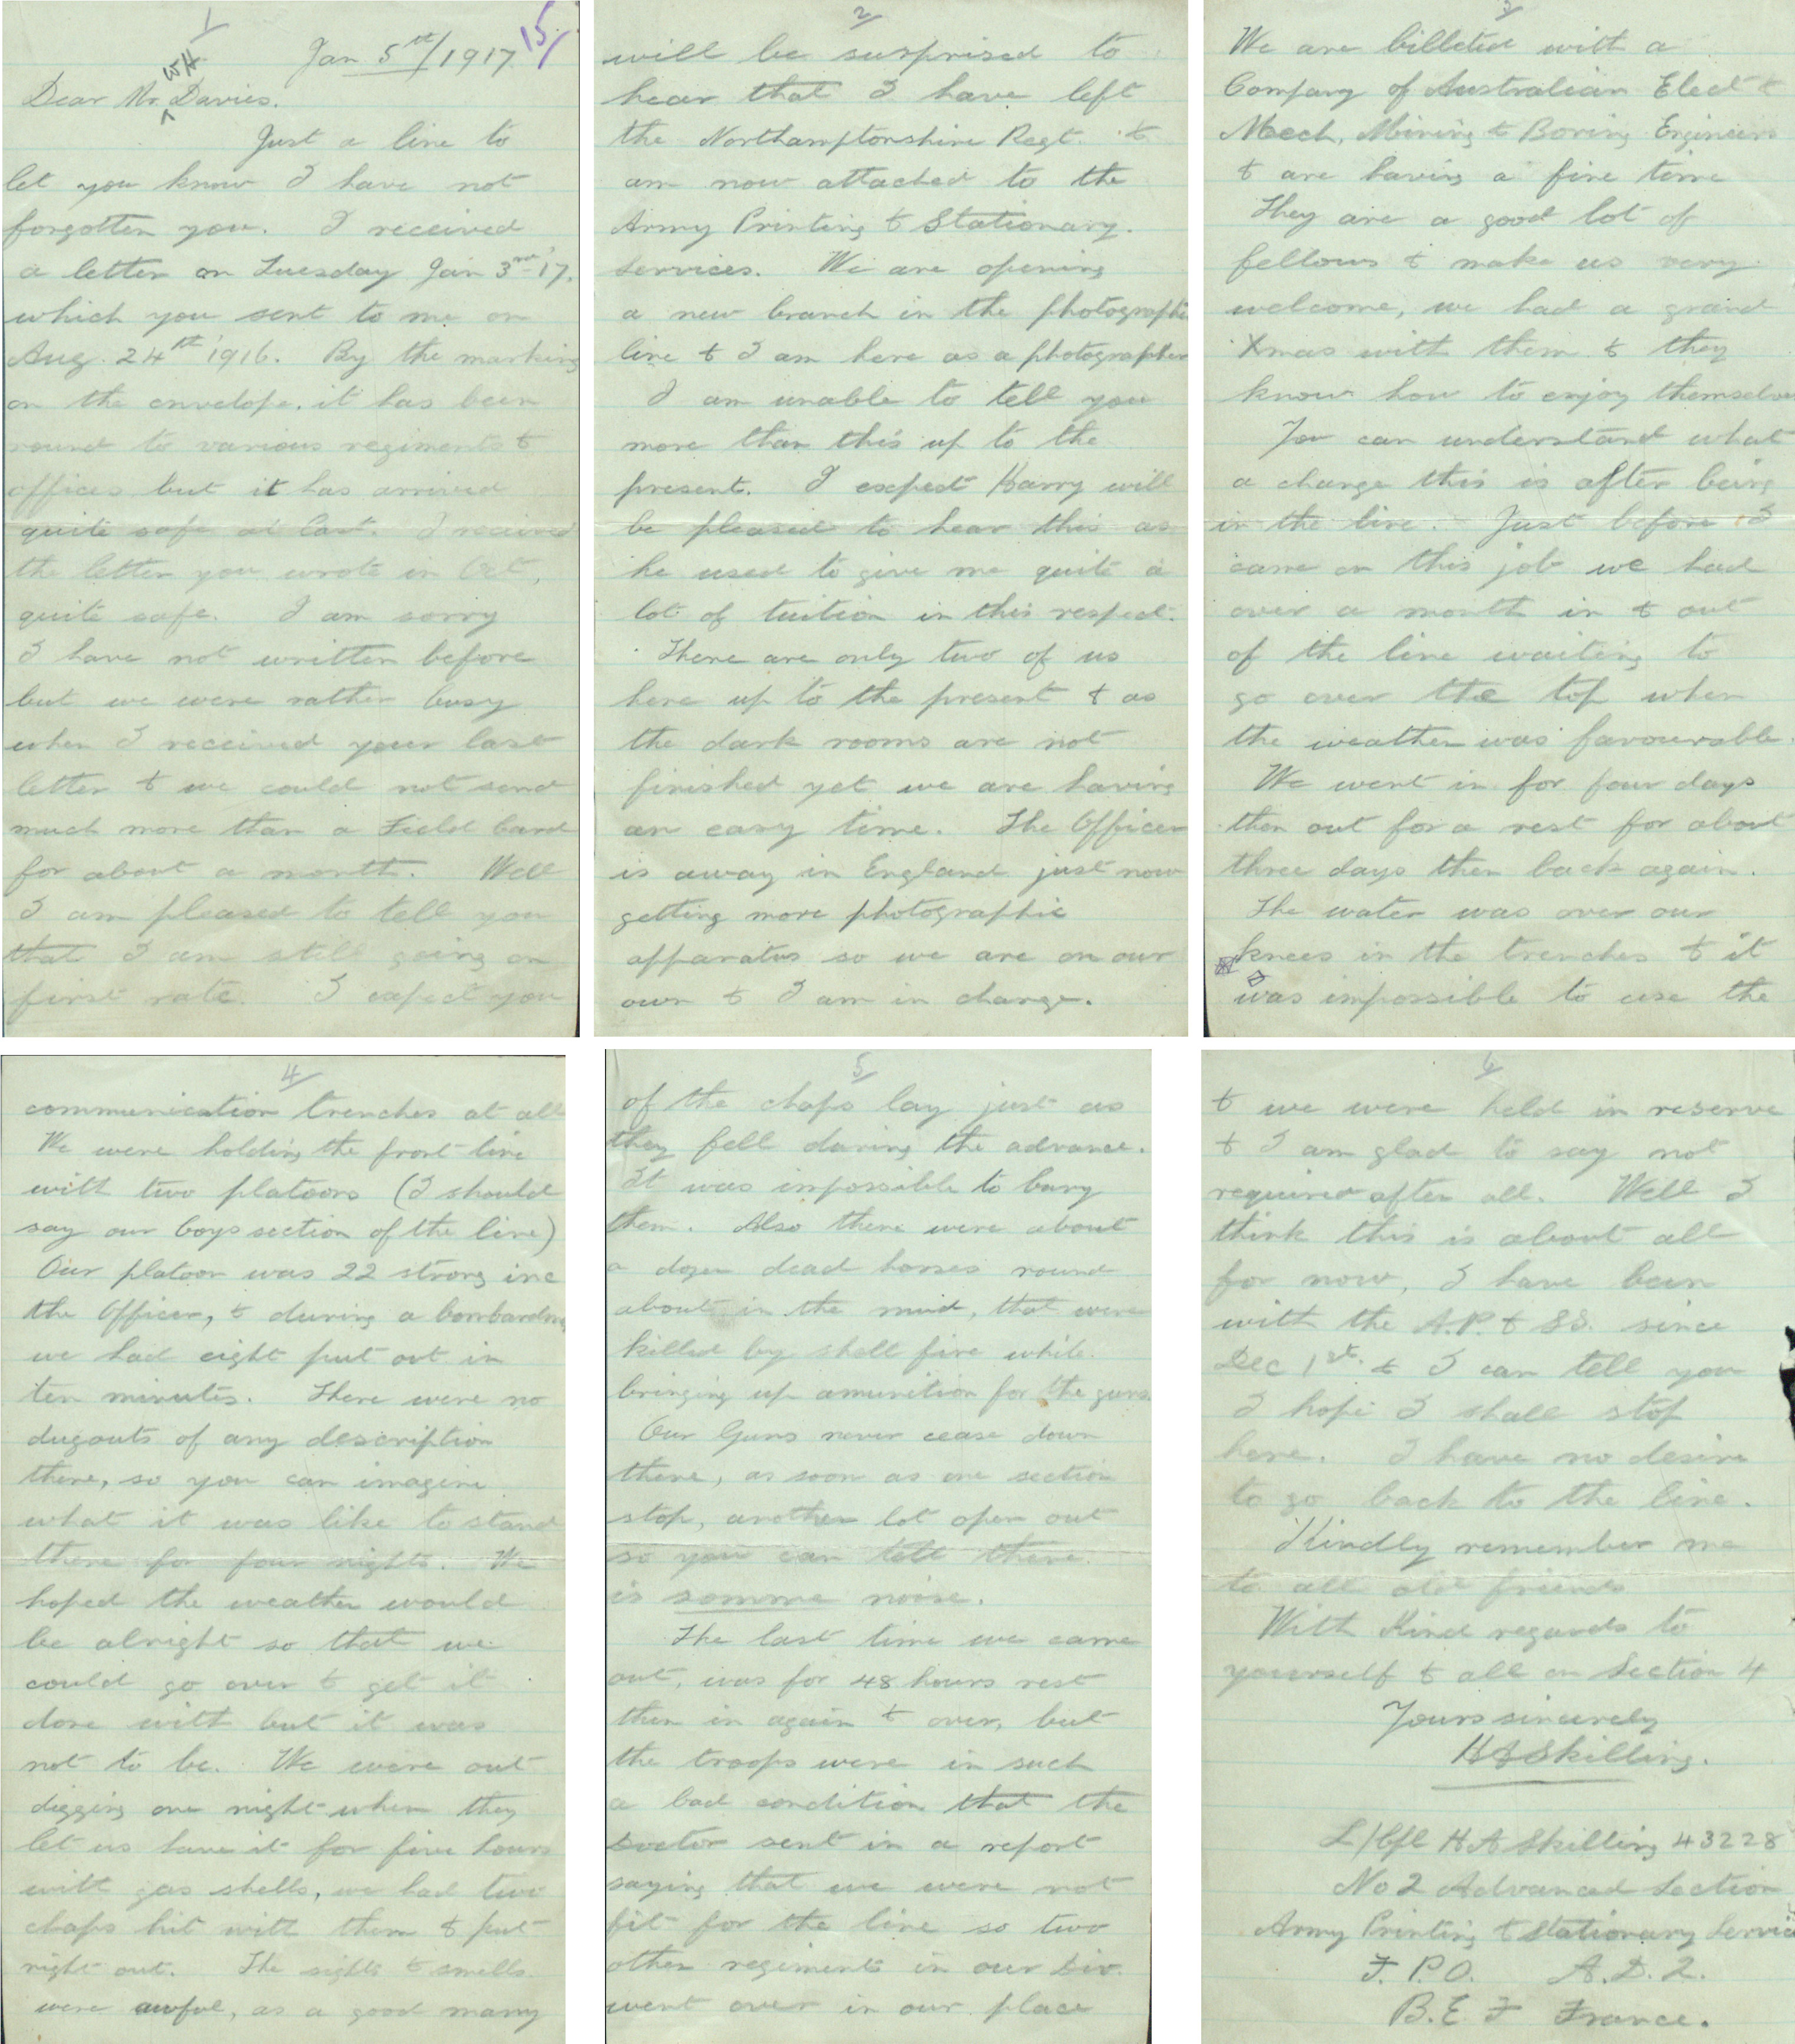 1/
15/
Jan 5th/1917.
WH
Dear Mr Davies.
Just a line to
let you know I have not
forgotten you. I received
a letter on Tuesday Jan 3rd-17.
which you sent to me on
Aug. 24th 1916. By the marking
on the envelope, it has been
round to various regiments &
offices but it has arrived
quite safe at last. I received
the letter you wrote in Oct,
quite safe. I am sorry
I have not written before
but we were rather busy
when I received your last
letter & we could not send
much more than a Field Card
for about a month. Well
I am pleased to tell you
that I am still going on
first rate. I expect you
2/
will be surprised to
hear that I have left
the Northamptonshire Regt. &
am now attached to the
Army Printing & Stationary.
Services. We are opening
a new branch in the photographic
line & I am here as a photographer
I am unable to tell you
more than this up to the
present. I expect Harry will
be pleased to hear this as
he used to give me quite a
lot of tuition in this respect.
There are only two of us
here up to the present & as
the dark rooms are not
finished yet we are having
an easy time. The Officer
is away in England just now
getting more photographic
apparatus so we are on our
own & I am in charge.
3/
We are billeted with a
Company of Australian Elect &
Mech, Mining & Boring Engineers
& are having a fine time
They are a good lot of
fellows & make us very
welcome, we had a grand
Xmas with them & they
know how to enjoy themselves
You can understand what
a change this is after being
in the line. Just before I
came on this job we had
over a month in & out
of the line waiting to
go over the top when
the weather was favourable.
We went in for four days
then out for a rest for about
three days then back again.
The water was over our
knees in the trenches & it
was impossible to use the
4/
communication trenches at all
We were holding the front line
with two platoons (I should
say our boys section of the line)
Our platoon was 22 strong inc
the Officer, & during a bombardm
we had eight put out in
ten minutes. There were no
dugouts of any description
there, so you can imagine
what it was like to stand
there for four nights. We
hoped the weather would
be alright so that we
could go over & get it
done with but it was
not to be. We were out
digging one night when they
let us have it for five hours
with gas shells, we had two
chaps hit with them & put
right out. The sights & smells
were awful, as a good many
5/
of the chaps lay just as
they fell during the advance.
It was impossible to bury
them. Also there were about
a dozen dead horses round
about in the mud, that were
killed by shell fire while
bringing up amunition for the guns.
Our Guns never cease down
there, as soon as one section
stop, another lot open out
so you can tell there
is somme noise.
The last time we came
out, was for 48 hours rest
then in again & over, but
the troops were in such
a bad condition that the
Doctor sent in a report
saying that we were not
fit for the line so two
other regiments in our Div.
went over in our place
6/
& we were held in reserve
& I am glad to say not
required after all. Well I
think this is about all
for now, I have been
with the A.P. & SS. since
Dec 1st. & I can tell you
I hope I shall stop
here. I have no desire
to go back to the line.
Kindly remember me
to all old friends
With Kind regards to
yourself & all on Section 4
Yours sincerely
HASkilling.
L/Cpl H A Skilling 43228
No 2 Advanced Section
Army Printing & Stationary Service
F. P.O. A. D. 2.
B. E F France.